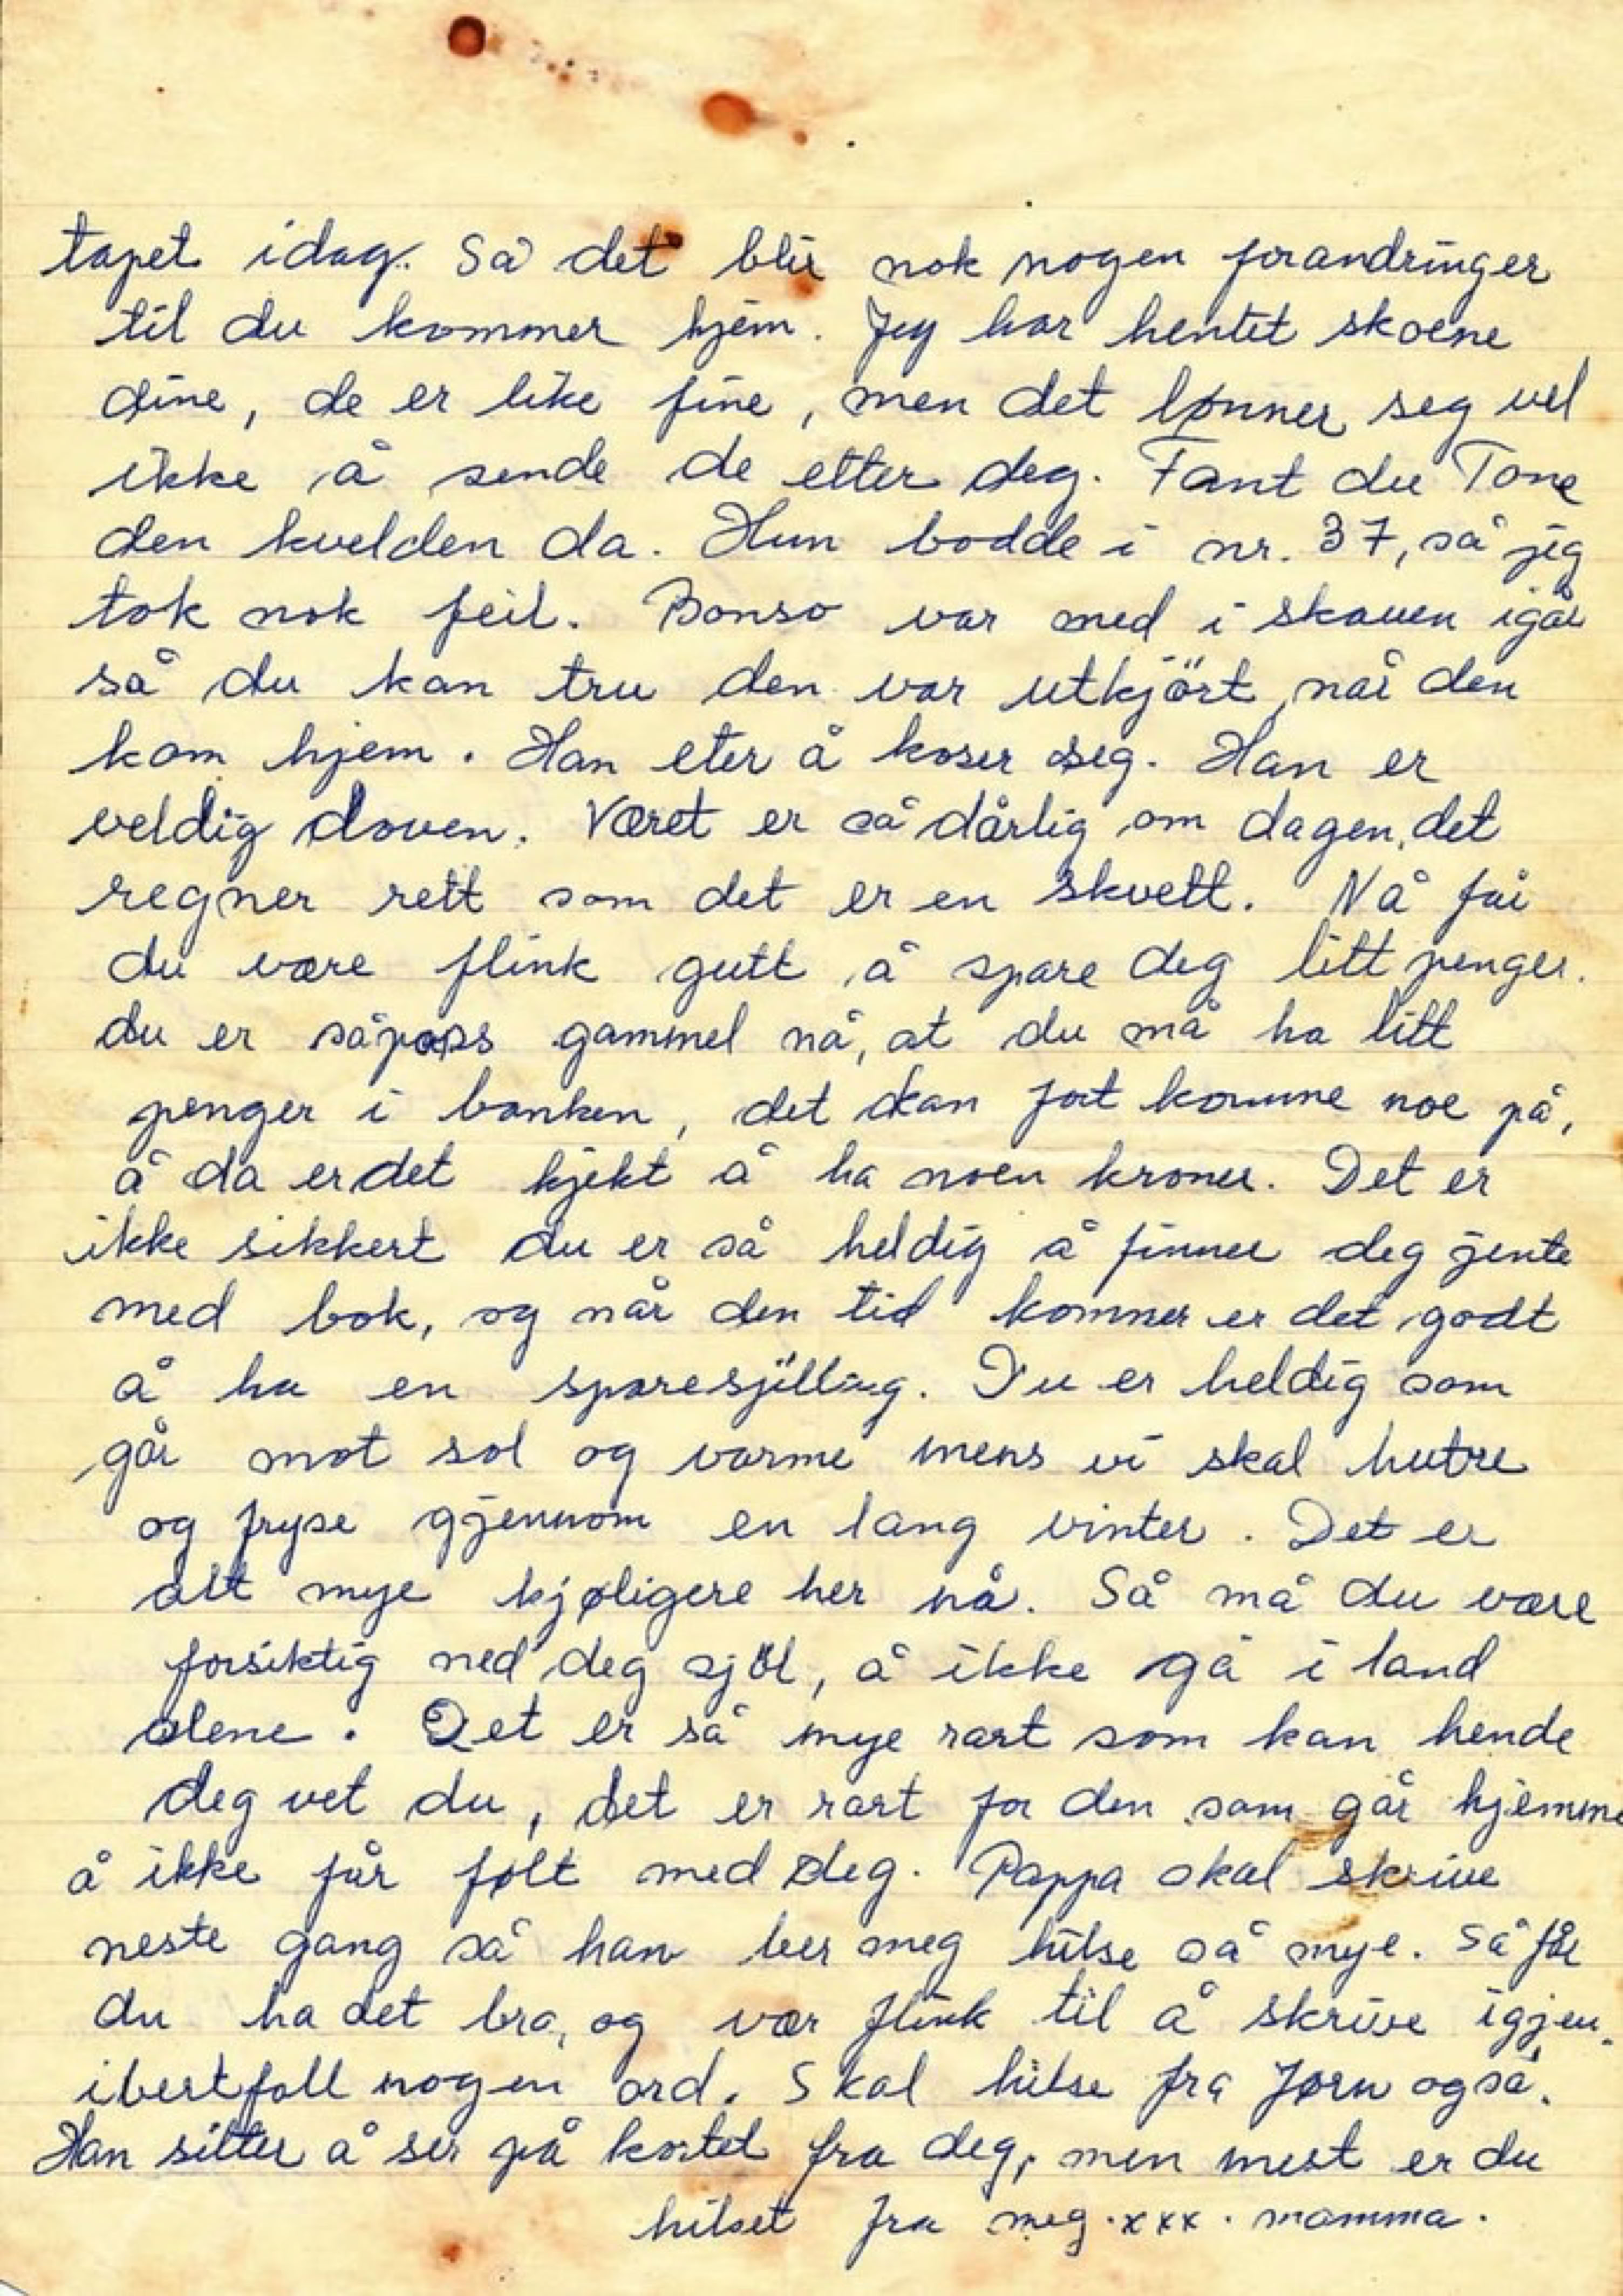 tapet idag. Så det blir nok nogen forandringer
til du kommer hjem. Jeg har hentet skoene
dine, de er like fine, men det lønner seg vel
ikke å sende de etter deg. Fant du Tone
den kvelden da. Hun bodde i nr. 37, så jeg
tok nok feil. Bonso var med i skauen igår
så du kan tru den var utkjört, når den
kom hjem. Han eter å koser seg. Han er
veldig doven. Været er så dårlig om dagen, det
regner rett som det er en skvett. Nå får
du være flink gutt å spare deg litt penger.
du er såpass gammel nå, at du må ha litt
penger i banken, det kan fort komme noe på,
å da er det kjekt å ha noen kroner. Det er
ikke sikkert du er så heldig å finner deg jente
med bok, og når den tid kommer er det godt
å ha en sparesjilling. Du er heldig som
går mot sol og varme mens vi skal hutre
og fryse gjennom en lang vinter. Det er
alt mye kjøligere her nå. Så må du være
forsiktig med deg sjöl, å ikke gå i land
alene. Det er så mye rart som kan hende
deg vet du, det er rart for den som går hjemme
å ikke får følt med deg. Pappa skal skrive
neste gang så han ber meg hilse så mye. Så får
du ha det bra, og vær flink til å skrive igjen.
ibertfall nogen ord. Skal hilse fra Jørn også.
Han sitter å ser på kortet fra deg, men mest er du
hilset fra meg. xxx. mamma.